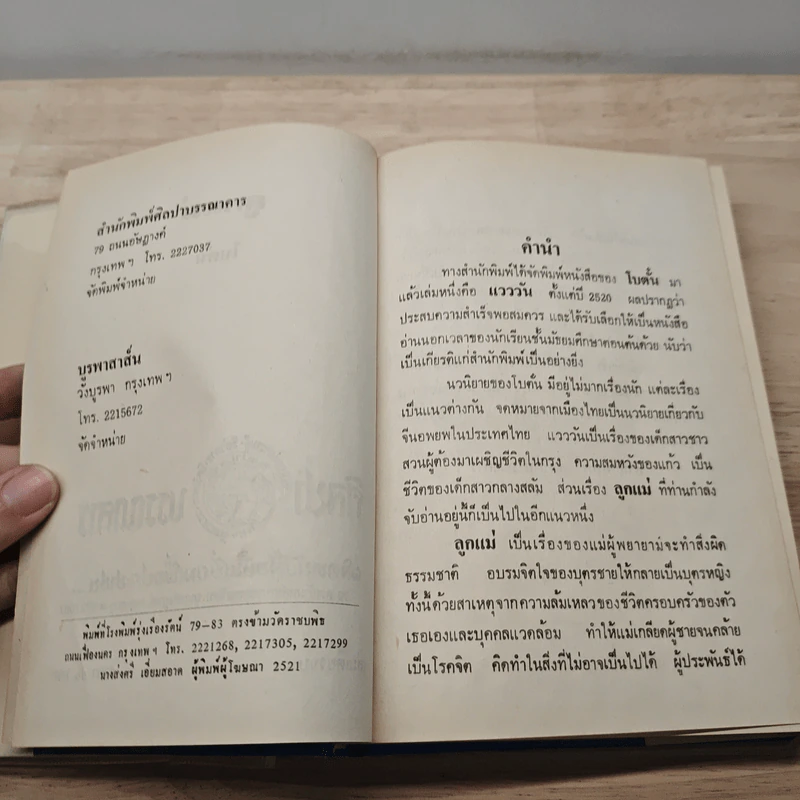 สำนักพิมพ์ศิลปาบรรณาคาร
79 ถนนอัษฎางค์
กรุงเทพฯ โทร. 2227037
จัดพิมพ์จำหน่าย
บูรพาสาส์น
วังบูรพา กรุงเทพฯ
โทร. 2215672
จัดจำหน่าย
พิมพ์ที่โรงพิมพ์รุ่งเรืองรัตน์ 79-83 ตรงข้ามวัดราชบพิธ
ถนนเฟื่องนคร กรุงเทพฯ โทร. 2221268, 2217305, 2217299
นางสงศรี เอี่ยมสอาด ผู้พิมพ์ผู้โฆษณา 2521
คำนำ
ทางสำนักพิมพ์ได้จัดพิมพ์หนังสือของ โบตั๋น มา
แล้วเล่มหนึ่งคือ แวววัน ตั้งแต่ปี 2520 ผลปรากฏว่า
ประสบความสำเร็จพอสมควร และได้รับเลือกให้เป็นหนังสือ
อ่านนอกเวลาของนักเรียนชั้นมัธยมศึกษาตอนต้นด้วย นับว่า
เป็นเกียรติแก่สำนักพิมพ์เป็นอย่างยิ่ง
นวนิยายของโบตั๋น มีอยู่ไม่มากเรื่องนัก แต่ละเรื่อง
เป็นแนวต่างกัน จดหมายจากเมืองไทยเป็นนวนิยายเกี่ยวกับ
จีนอพยพในประเทศไทย แวววันเป็นเรื่องของเด็กสาวชาว
สวนผู้ต้องมาเผชิญชีวิตในกรุง ความสมหวังของแก้ว เป็น
ชีวิตของเด็กสาวกลางสลัม ส่วนเรื่อง ลูกแม่ ที่ท่านกำลัง
จับอ่านอยู่นี้ก็เป็นไปในอีกแนวหนึ่ง
ลูกแม่ เป็นเรื่องของแม่ผู้พยายามจะทำสิ่งผิด
ธรรมชาติ อบรมจิตใจของบุตรชายให้กลายเป็นบุตรหญิง
ทั้งนี้ด้วยสาเหตุจากความล้มเหลวของชีวิตครอบครัวของตัว
เธอเองและบุคคลแวดล้อม ทำให้แม่เกลียดผู้ชายจนคล้าย
เป็นโรคจิต คิดทำในสิ่งที่ไม่อาจเป็นไปได้ ผู้ประพันธ์ได้